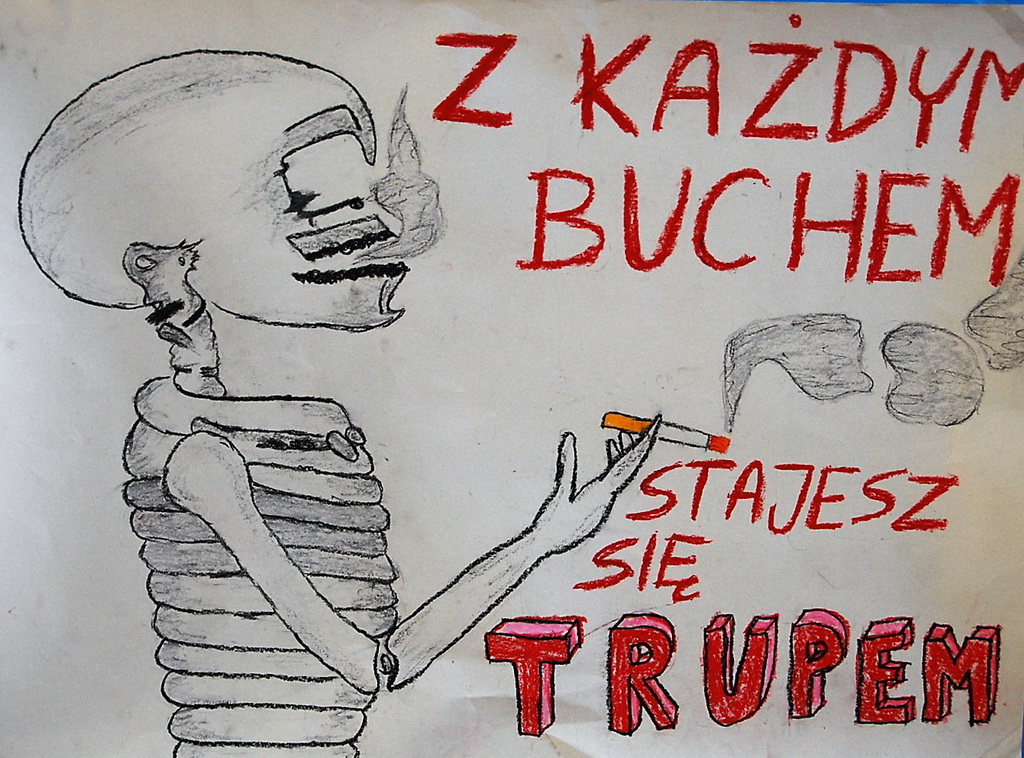 Z KAŻDYM
BUCHEM
STAJESZ
SIĘ
TRUPEM